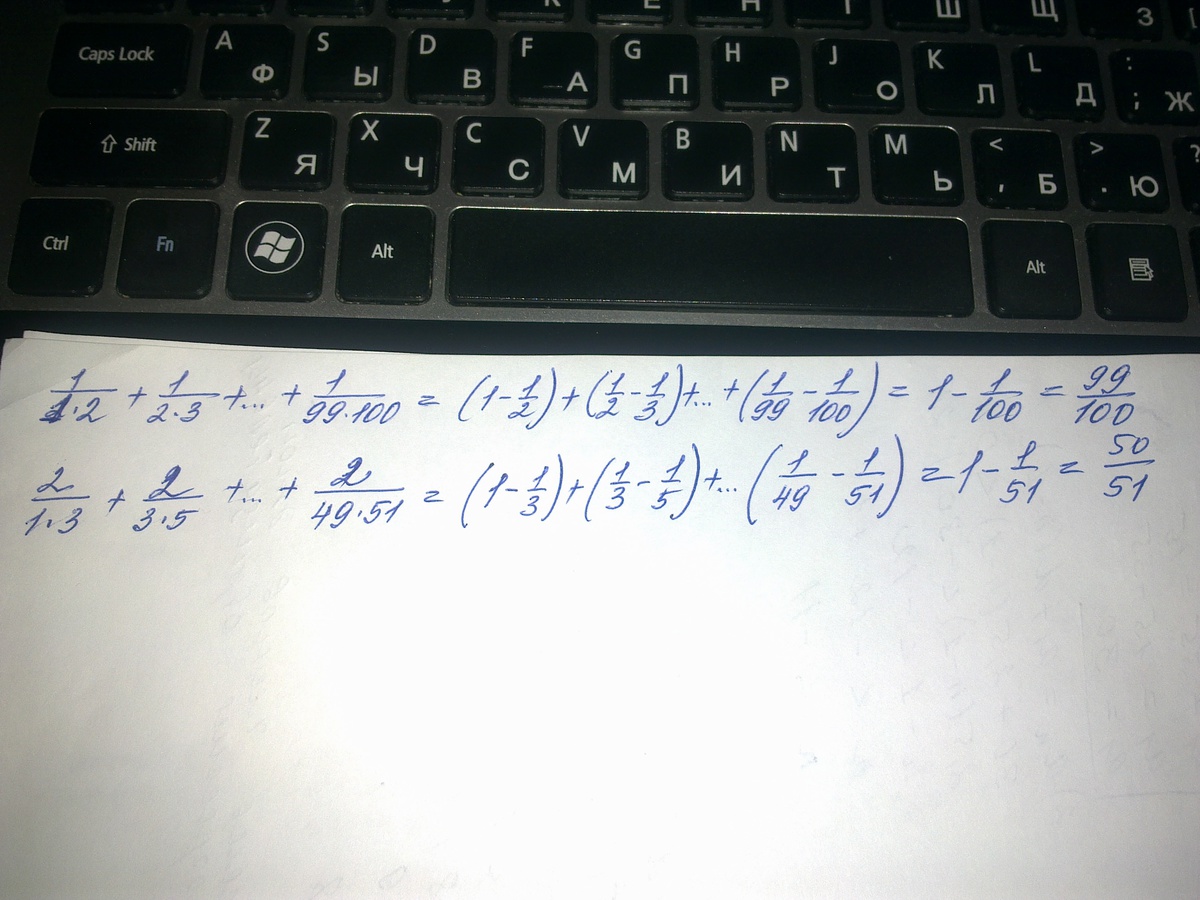 Caps Lock A Ф S Ы D В F А G П H Р J О K Л L Д : ; Ж
Shift Z Я X Ч C С V М B И N Т M Ь < , Б > . Ю ?
Ctrl Fn Alt Alt
1/1·2 + 1/2·3 +... + 1/99·100 = (1-1/2)+(1/2-1/3)+... +(1/99-1/100) = 1-1/100 = 99/100
2/1·3 + 2/3·5 +... + 2/49·51 = (1-1/3)+(1/3-1/5)+... (1/49-1/51) = 1-1/51 = 50/51